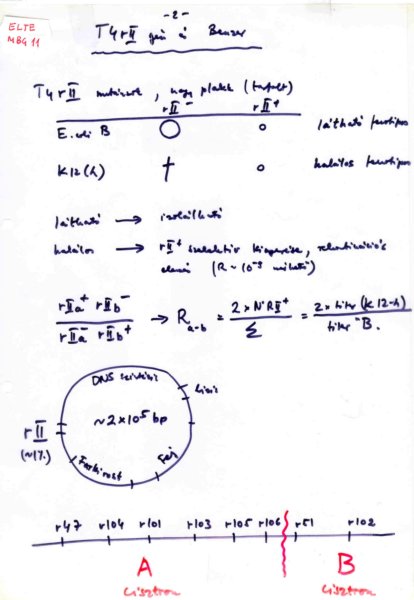 ELTE
MBG 11
-2-
T4rII gén és Benzer
T4 rII mutánsok, nagy plakk (tarfolt)
rII⁻ rII⁺
E. coli B ◯ o látható fenotípus
K12(λ) † o halálos fenotípus
látható → izolálható
halálos → rII⁺ szelektív kinyerése, rekombinációs
elemzés (R ~ 10⁻⁵ mérhető)
rIIa⁺ rIIb⁻
rIIa⁻ rIIb⁺
→ R a-b = 2 x N°RII⁺ / Σ = 2 x titer (K12-λ) / titer "B.
DNS szintézis
Lízis
~2x10⁵ bp
rII
(~1%)
Farkirost
Fej
r47 r104 r101 r103 r105 r106 r51 r102
A B
Cisztron Cisztron